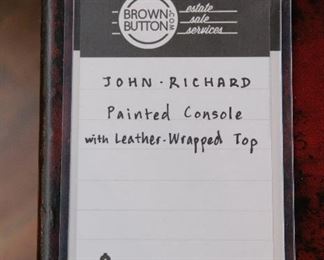 BROWN
BUTTON
.COM
estate
sale
services
JOHN-RICHARD
Painted Console
with Leather-Wrapped Top